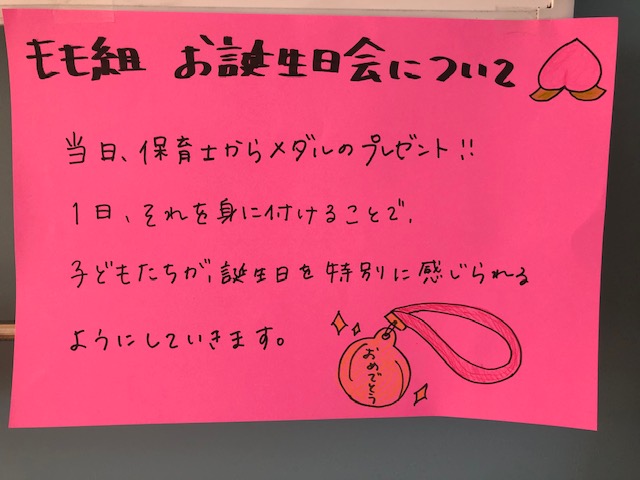 もも組 お誕生日会について
当日、保育士からメダルのプレゼント!!
1日、それを身に付けることで、
子どもたちが、誕生日を特別に感じられる
ようにしていきます。
おめでとう